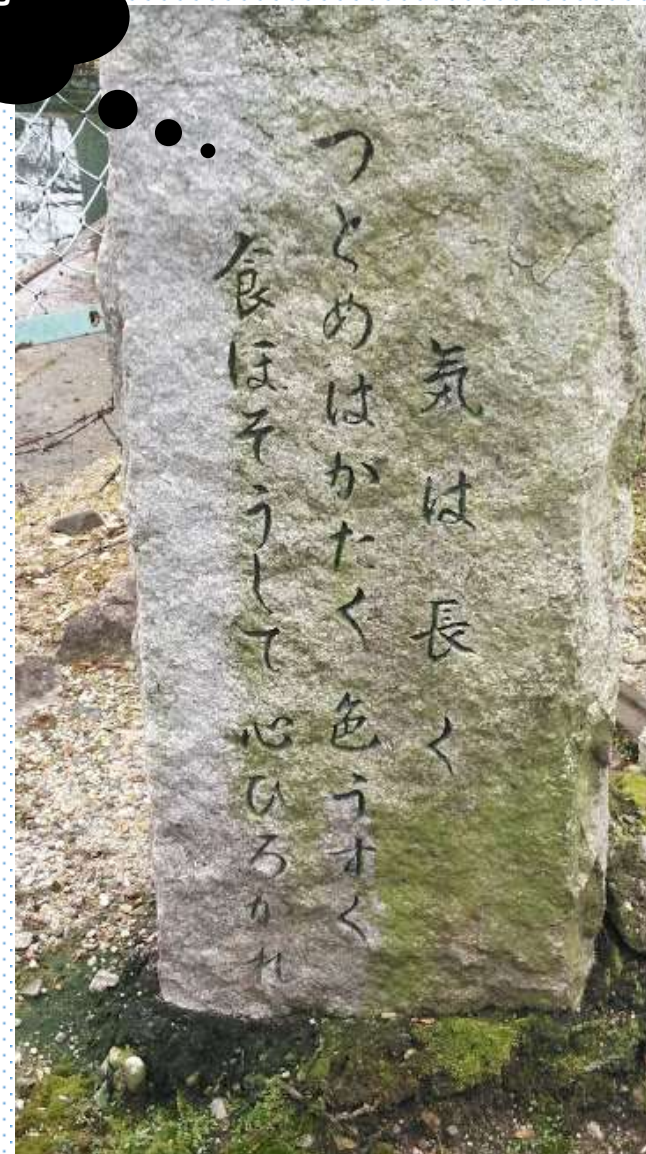 気は長く
つとめはかたく色うすく
食ほそうして心ひろかれ